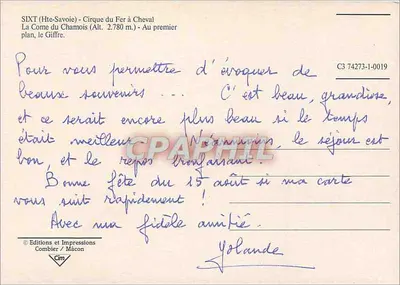 SIXT (Hte-Savoie) - Cirque du Fer à Cheval
La Corne du Chamois (Alt. 2.780 m.) - Au premier
plan, le Giffre.
C3 74273-1-0019
Pour vous permettre d'évoquer de
beaux souvenirs ... C'est beau, grandiose,
et ce serait encore plus beau si le temps
était meilleur. Néanmoins, le séjour est
bon, et le repos bienfaisant.
Bonne fête du 15 août si ma carte
vous suit rapidement !
Avec ma fidèle amitié.
Yolande
CPARPHIL
© Editions et Impressions
Combier / Mâcon
Cim